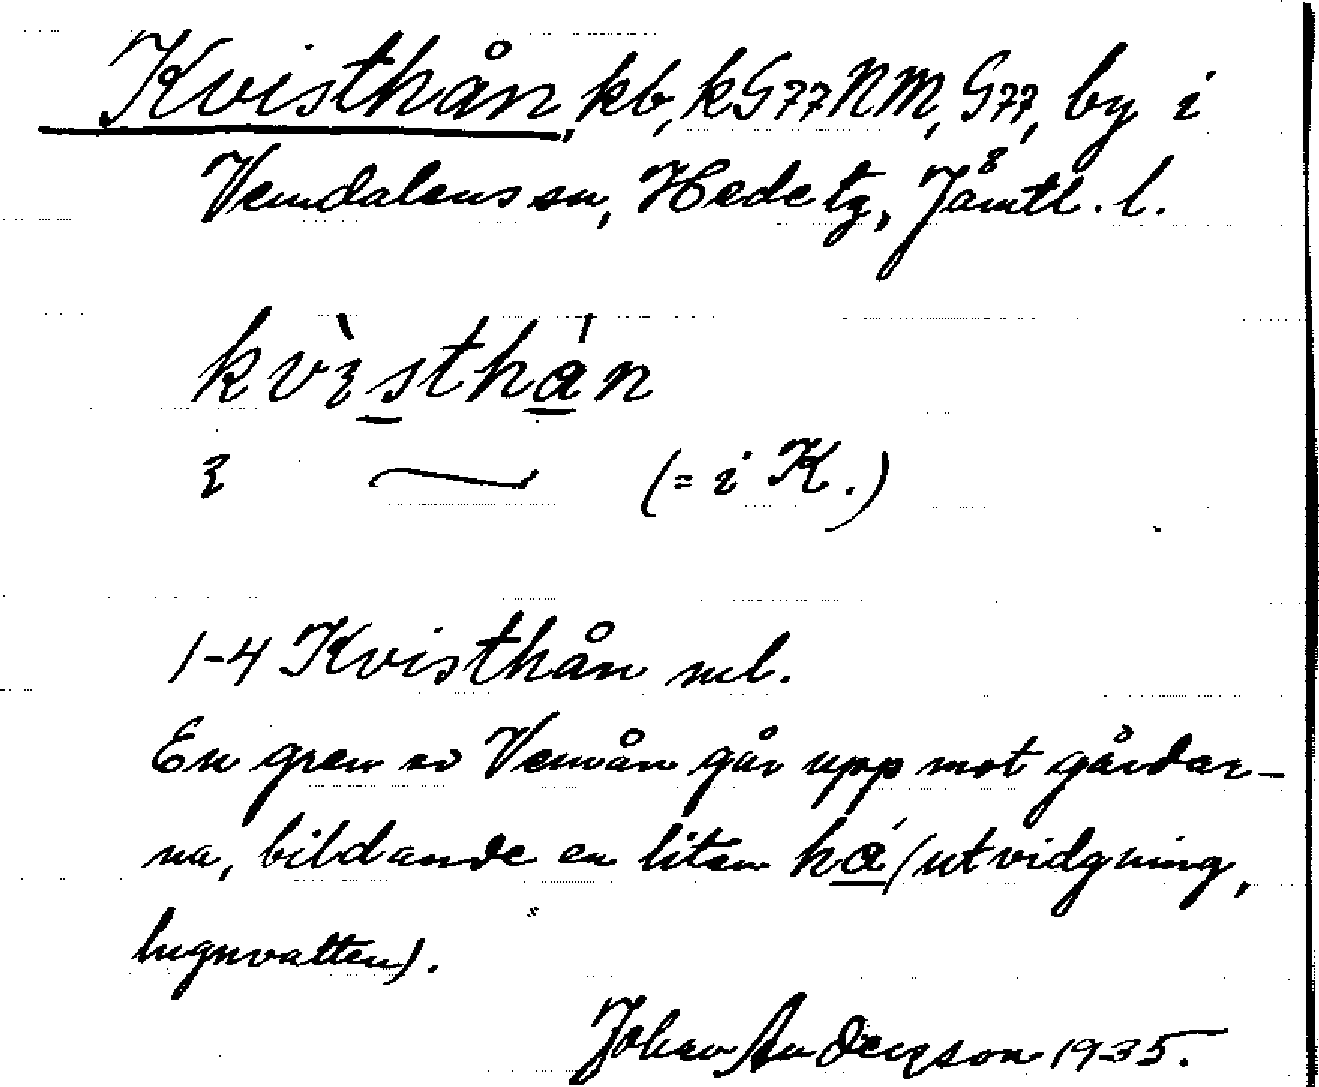 Kvisthån, kb, kG77NM, G77, by i
Vemdalens sn, Hede tg, Jämtl. l.
kvìsthán
i ~ (= i K.)
1-4 Kvisthån ml.
En gren av Vemån går upp mot gårdar-
na, bildande en liten há (utvidgning,
lugnvatten).
Johan Anderson 1935.